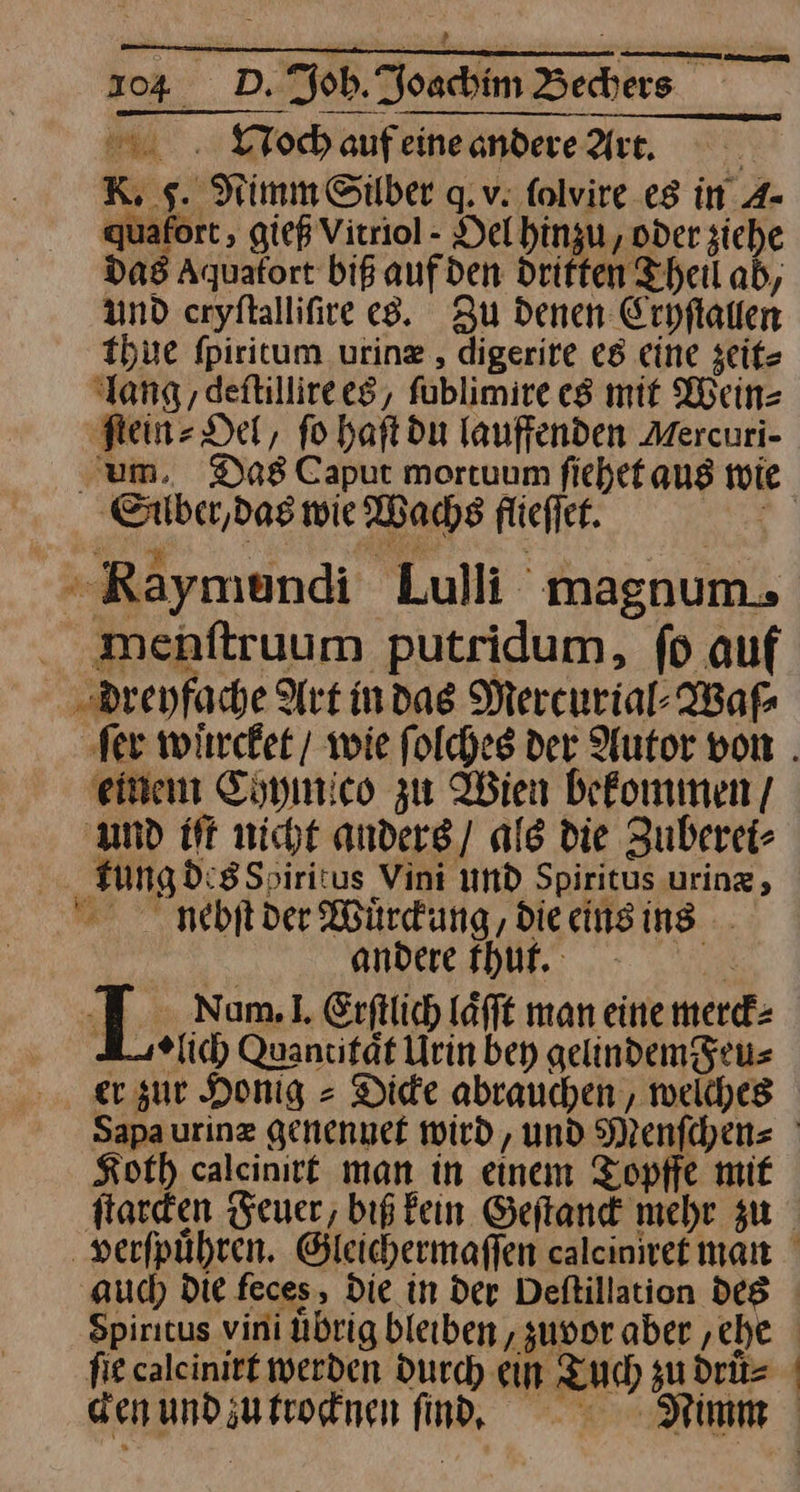 104 D. Joh. Joachim Bechers
Noch auf eine andere Art.
R. ꝭ. Nimm Silber q. v. ſolvire es in A-
quafort, gieß Vitriol - Oel hinzu, oder ziehe
das Aquafort biß auf den dritten Theil ab,
und cryſtalliſire es. Zu denen Cryſtallen
thue ſpiritum urinæ, digerire es eine zeit-
lang, deſtillire es, ſublimire es mit Wein-
ſtein-Oel, ſo haſt du lauffenden Mercuri-
um. Das Caput mortuum ſiehet aus wie
Silber, das wie Wachs flieſſet.
Raymundi Lulli magnum
menſtruum putridum, ſo auf
dreyfache Art in das Mercurial-Waſ-
ſer wuͤrcket / wie ſolches der Autor von
einem Chymico zu Wien bekommen /
und iſt nicht anders / als die Zuberei-
tung des Spiritus Vini und Spiritus urinæ,
nebſt der Wuͤrckung, die eins ins
andere thut.
Num. I. Erſtlich laͤſſt man eine merck-
lich Quantitaͤt Urin bey gelindem Feu-
er zur Honig - Dicke abrauchen, welches
Sapa urinæ genennet wird, und Menſchen-
Koth calcinirt man in einem Topffe mit
ſtarcken Feuer, biß kein Geſtanck mehr zu
verſpuͤhren. Gleichermaſſen calciniret man
auch die feces, die in der Deſtillation des
Spiritus vini uͤbrig bleiben, zuvor aber, ehe
ſie calcinirt werden durch ein Tuch zu druͤ-
cken und zu trocknen ſind. Nimm